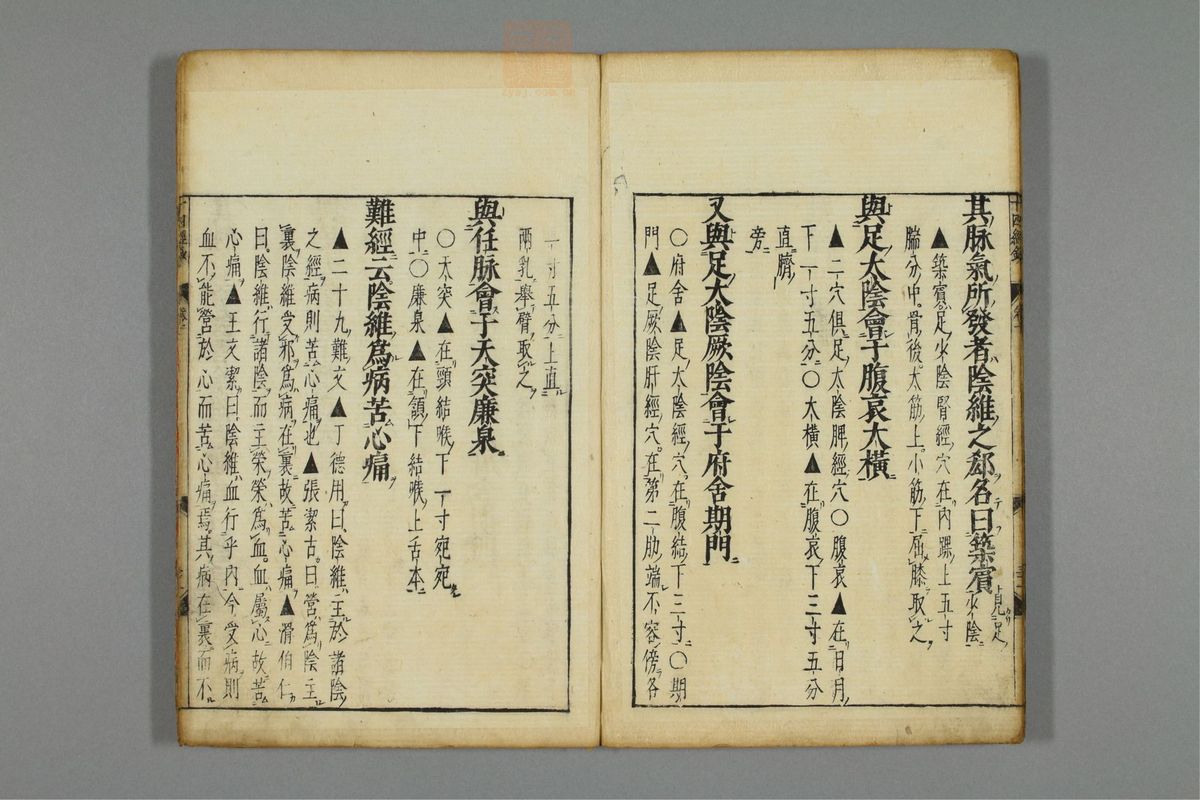 其脉氣所發者陰維之郄名曰築賓見足少陰
▲築賓足少陰腎經穴在內踝上五寸
腨分中骨後大筋上小筋下屈膝取之
與足太陰會于腹哀大橫
▲二穴俱足太陰脾經穴○腹哀▲在日月
下一寸五分○大橫▲在腹哀下三寸五分
直臍
旁
又與足太陰厥陰會于府舍期門
○府舍▲足太陰經穴在腹結下三寸○期
門▲足厥陰肝經穴在第二肋端不容傍各
一寸五分上直
兩乳舉臂取之
與任脉會于天突廉泉
○天突▲在頸結喉下一寸宛宛
中○廉泉▲在頷下結喉上舌本
難經云陰維爲病苦心痛
▲二十九難文▲丁德用曰陰維主於諸陰
之經病則苦心痛也▲張潔古曰營爲陰主
裏陰維受邪爲病在裏故苦心痛▲滑伯仁
曰陰維行諸陰而主榮榮爲血血屬心故苦
心痛▲王文潔曰陰維血行乎內今受病則
血不能營於心而苦心痛焉其病在裏而不
十四經